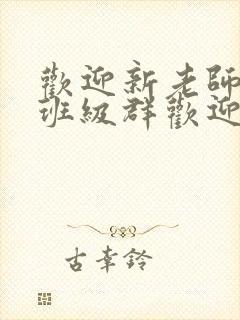 歡迎新老師
班級群歡迎
古幸鈴